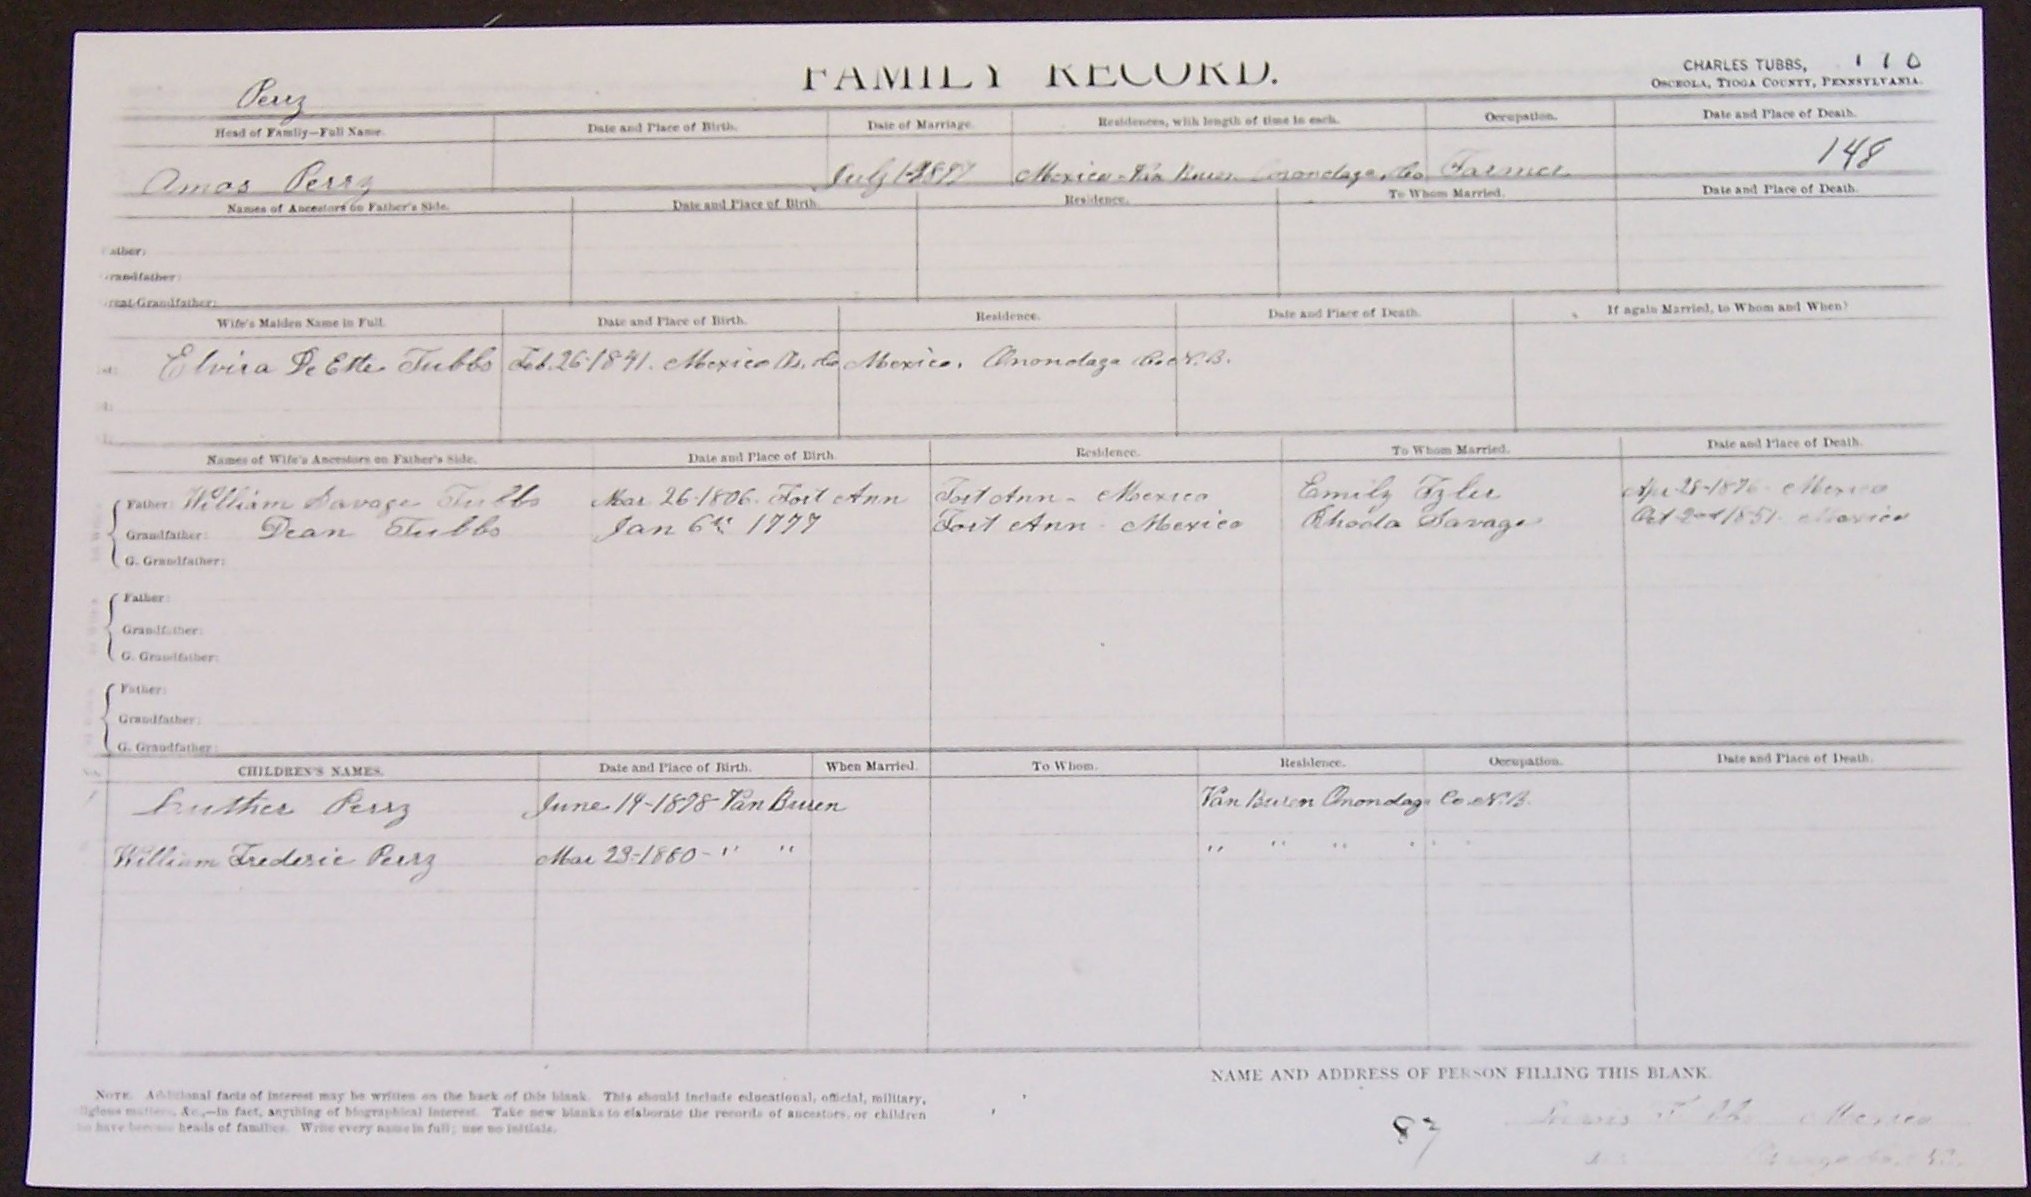 FAMILY RECORD.
CHARLES TUBBS, 110
OSCEOLA, TIOGA COUNTY, PENNSYLVANIA.
Perry
Head of Family—Full Name. Date and Place of Birth. Date of Marriage. Residences, with length of time in each. Occupation. Date and Place of Death.
148
Amos Perry July Mexico Van Buren Onondaga Co Farmer
Names of Ancestors on Father's Side. Date and Place of Birth. Residence. To Whom Married. Date and Place of Death.
ather:
randfather:
reat-Grandfather:
Wife's Maiden Name in Full. Date and Place of Birth. Residence. Date and Place of Death. If again Married, to Whom and When?
Elvira De Ette Tubbs Feb. 26-1841. Mexico Os. Co Mexico. Onondaga Co N.Y.
Names of Wife's Ancestors on Father's Side. Date and Place of Birth. Residence. To Whom Married. Date and Place of Death.
Father: William Savage Tubbs Mar 26-1806. Fort Ann Fort Ann - Mexico Emily Tyler Apr 28-1876 Mexico
Grandfather: Dean Tubbs Jan 6th 1777 Fort Ann - Mexico Rhoda Savage Oct 2nd 1851. Mexico
G. Grandfather:
Father:
Grandfather:
G. Grandfather:
Father:
Grandfather:
G. Grandfather:
CHILDREN'S NAMES. Date and Place of Birth. When Married. To Whom. Residence. Occupation. Date and Place of Death.
Luther Perry June 14-1878 Van Buren Van Buren Onondaga Co. N.Y.
William Frederic Perry Mar 23-1880 - " " " " " " "
NAME AND ADDRESS OF PERSON FILLING THIS BLANK.
NOTE. Additional facts of interest may be written on the back of this blank. This should include educational, official, military,
ligious matters, &c.,—in fact, anything of biographical interest. Take new blanks to elaborate the records of ancestors, or children
ho have become heads of families. Write every name in full; use no initials.
87 Mexico